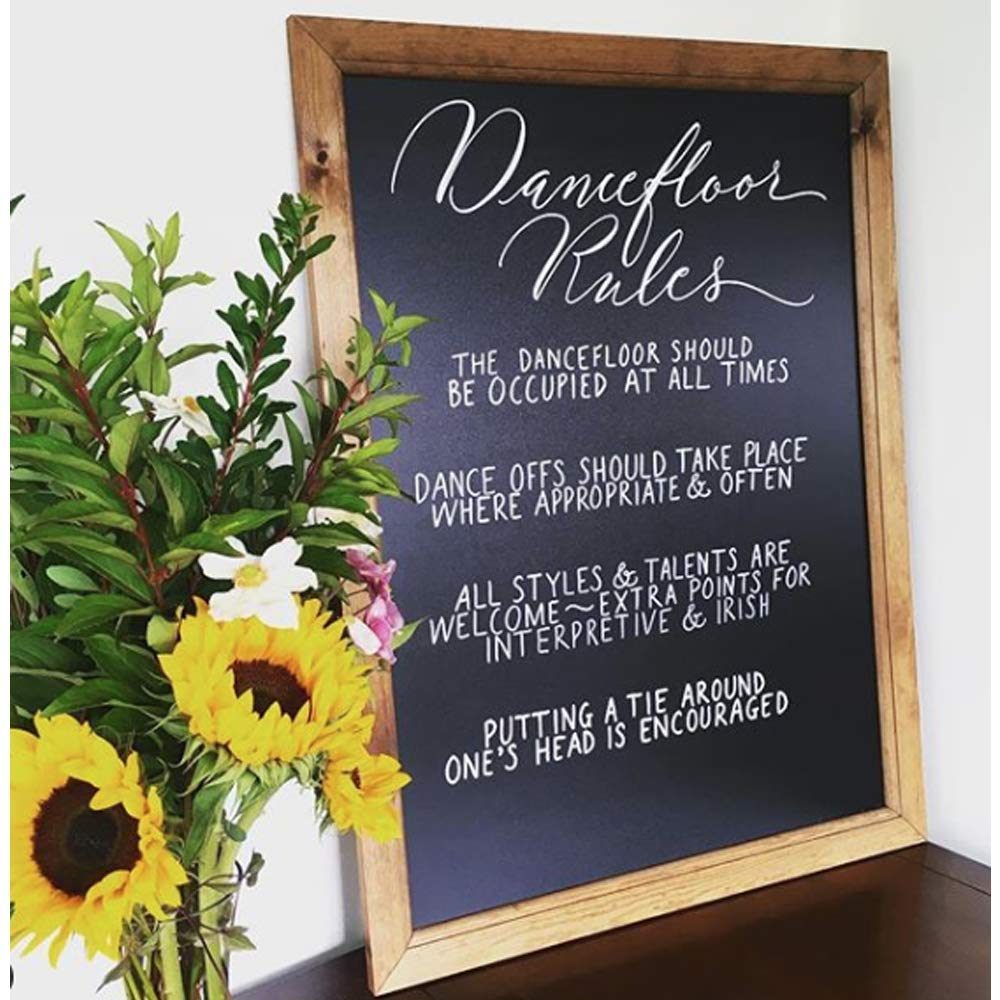 Dancefloor
Rules
THE DANCEFLOOR SHOULD
BE OCCUPIED AT ALL TIMES
DANCE OFFS SHOULD TAKE PLACE
WHERE APPROPRIATE & OFTEN
ALL STYLES & TALENTS ARE
WELCOME ~ EXTRA POINTS FOR
INTERPRETIVE & IRISH
PUTTING A TIE AROUND
ONE'S HEAD IS ENCOURAGED